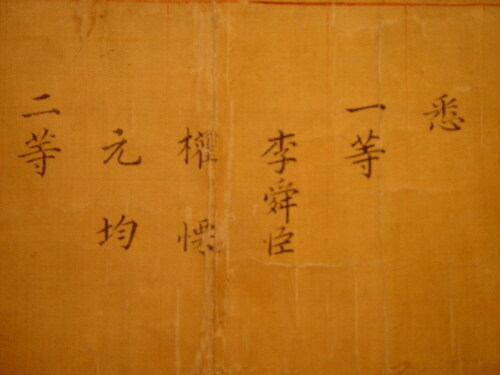 悉
一等
李舜臣
權慄
元均
二等